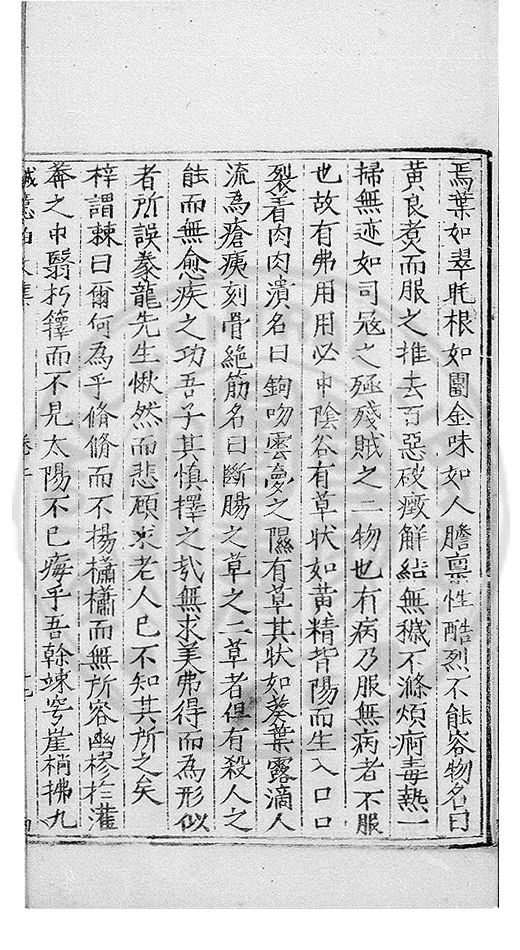 焉葉如翠眊根如團金味如人膽稟性酷烈不能容物名曰
黃良煮而服之推去百惡破癥解結無穢不滌煩痾毒熱一
掃無迹如司冦之殛殘賊之二物也有病乃服無病者不服
也故有弗用用必中陰谷有草狀如黃精背陽而生入口口
裂着肉肉潰名曰鉤吻雲夢之隰有草其狀如葵葉露滴人
流為瘡痍刻骨絶筋名曰斷腸之草之二草者但有殺人之
能而無愈疾之功吾子其慎擇之哉無求美弗得而為形似
者所誤豢龍先生愀然而悲顧求老人已不知其所之矣
梓謂棘曰爾何為乎脩脩而不揚櫹櫹而無所容幽樛於灌
莽之中翳朽籜而不見太陽不已痗乎吾幹竦穹崖梢拂九
誠意伯文集 卷二